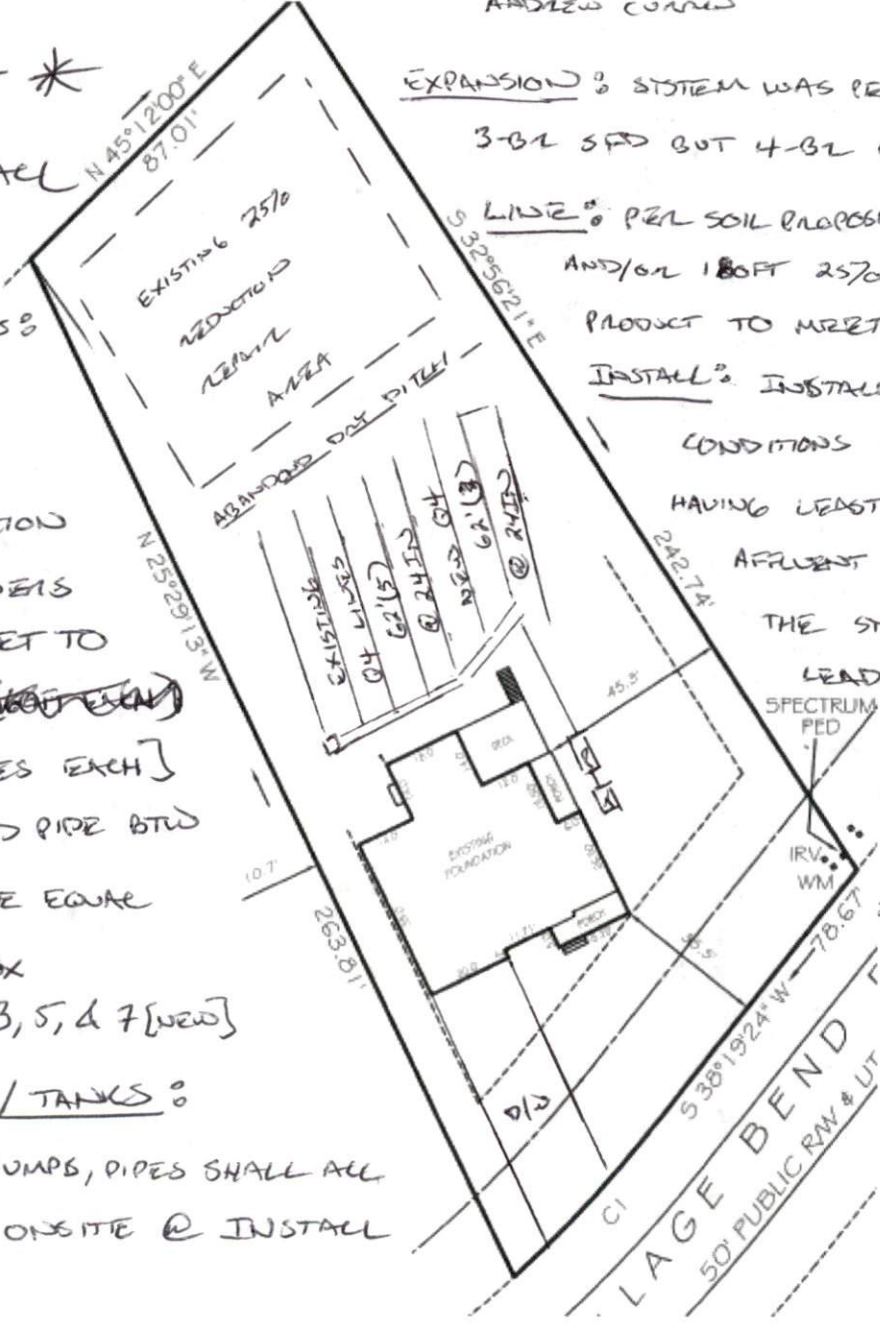 ANDREW CURRIN
EXPANSION: SYSTEM WAS PE
3-BR SFD BUT 4-BR
LINE: PER SOIL PROPOS
AND/OR 25%
PRODUCT TO MEET
INSTALL: INSTALL
CONDITIONS
HAVING LEAST
AFFLUENT
THE
LEAD
SPECTRUM
PED
IRV
WM
ALL
S:
TION
DERS
ET TO
ES EACH]
D PIPE BTW
E EQUAL
OX
3, 5, & 7 [NEW]
/ TANKS:
UMPS, PIPES SHALL ALL
ONSITE @ INSTALL
N 45°12'00" E
87.01'
S 32°56'21" E
242.74'
N 25°29'13" W
263.81'
EXISTING 25%
REDUCTION
REPAIR
AREA
ABANDOND DRY DITCH
EXISTING
Q4 LINES
62'(5)
@ 24IN
NEW Q4
62'(3)
@ 24IN
45.3'
10.7'
DECK
PORCH
EXISTING
FOUNDATION
PORCH
D/W
C1
S 38°19'24" W
78.67'
LAGE BEND
50' PUBLIC R/W & UT